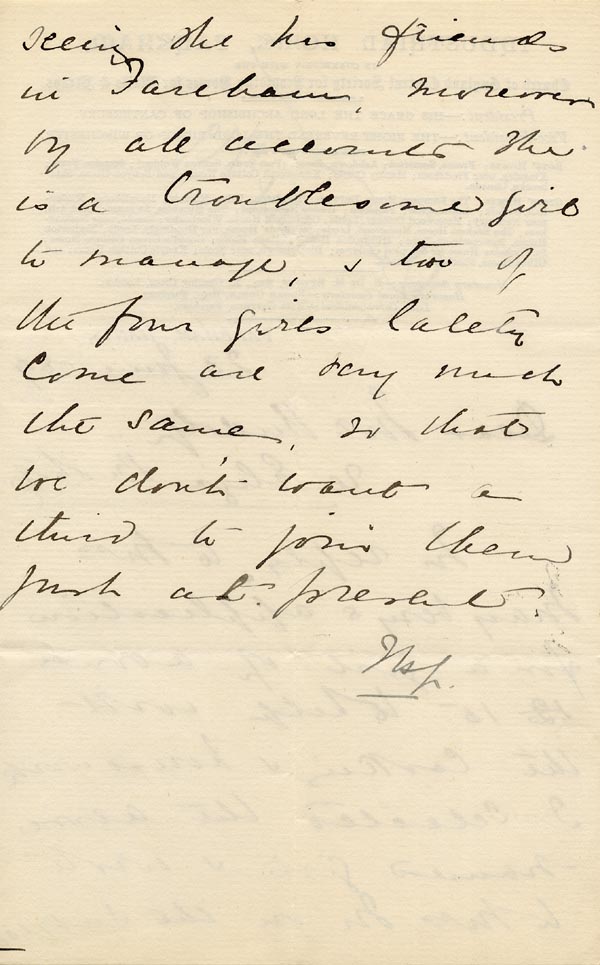 seeing she has friends
in Fareham, moreover
by all accounts she
is a troublesome girl
to manage, & two of
the four girls lately
come are very much
the same, so that
we don't want a
third to join them
just at present.